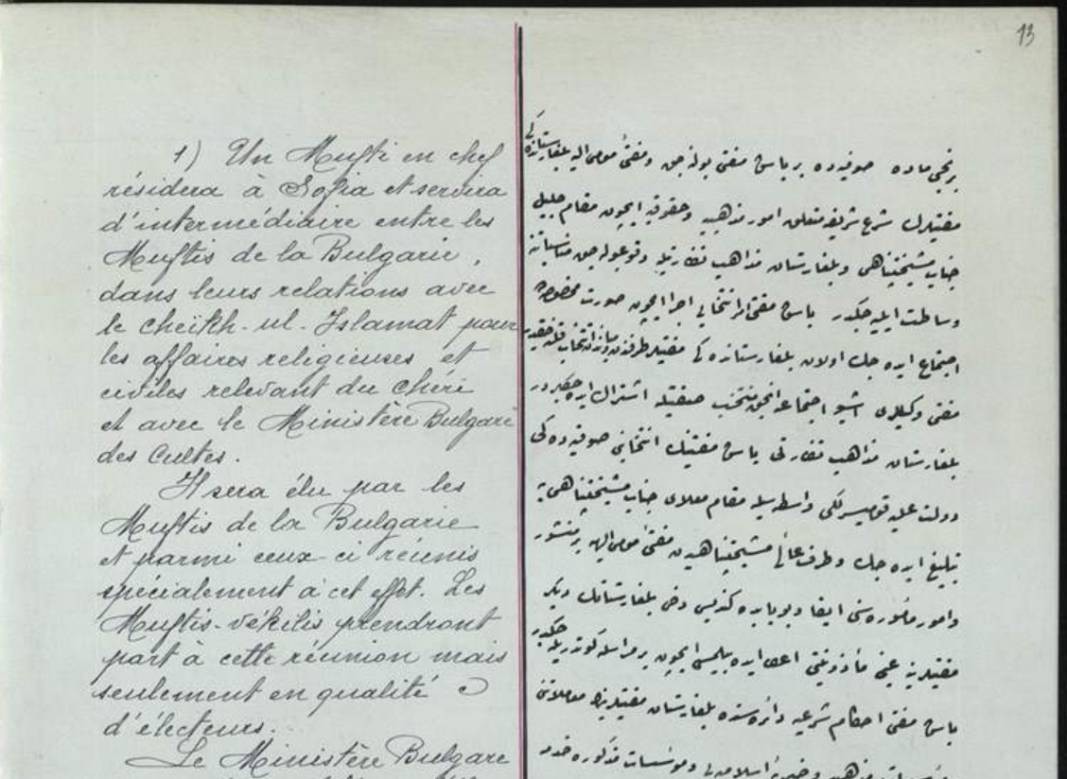 13
1) Un Mufti en chef
résidera à Sofia et servira
d'intermédiaire entre les
Muftis de la Bulgarie,
dans leurs relations avec
le cheïkh-ul-Islamat pour
les affaires religieuses et
civiles relevant du Chéri
et avec le Ministère Bulgare
des Cultes.
Il sera élu par les
Muftis de la Bulgarie
et parmi ceux-ci réunis
spécialement à cet effet. Les
Muftis-vékilis prendront
part à cette réunion mais
seulement en qualité
d'électeurs.
Le Ministère Bulgare
برنجی ماده صوفیه‌ده بر باش مفتی بوله‌جق و مفتئ مومی الیه بلغارستانده‌کی
مفتیلرك شرع شریفه متعلق امور مذهبیه و حقوقیه ایچون مقام جلیل
جناب مشیختپناهی و بلغارستان مذاهب نظارتیله وقوعبوله‌جق مناسباتنه
وساطت ایلیه‌جكدر باش مفتی انتخابی اجرا ایچون صورت مخصوصه‌ده
اجتماع ایده‌جك اولان بلغارستانده‌کی مفتیلر طرفندن
مفتی وكیللری اشبو اجتماعه انجق منتخب صفتیله اشتراك ایده‌جكلردر
بلغارستان مذاهب نظارتی باش مفتینك انتخابنی صوفیه‌ده‌کی
دولت علیه قومیسرلكی واسطه‌سیله مقام معلای جناب مشیختپناهی‌یه
تبلیغ ایده‌جك و طرف عالئ مشیختپناهیدن مفتئ مومی الیهه بر منشور
و امور مأموره‌سنی ایفا و بو بابده كندیسی دخی بلغارستانك دیكر
مفتیلرینه عینی مأذونیتی اعطا ایده‌بیلمسی ایچون بر مراسله كوندریله‌جكدر
باش مفتی احكام شرعیه دائره‌سنده بلغارستان مفتیلرینك معاملاتنی